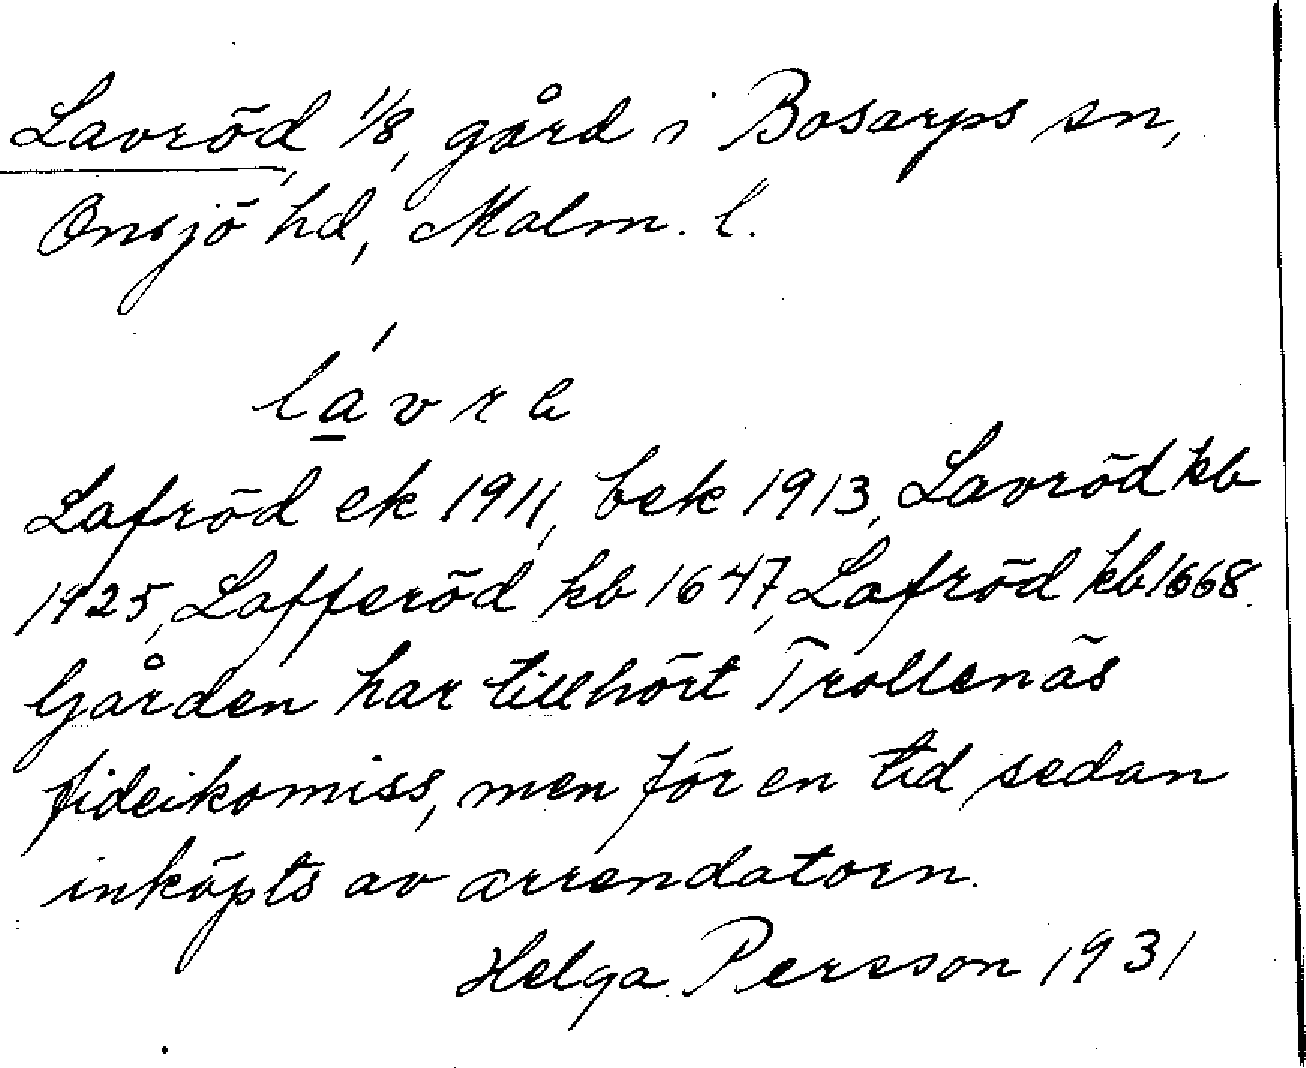 Lavröd, 1/8, gård i Bosarps sn,
Onsjö hd, Malm. l.
lávrə
Lafröd ek 1911, bek 1913, Lavröd kb
1925, Lafferöd kb 1647, Lafröd kb 1668.
Gården har tillhört Trollenäs
fideikomiss, men för en tid sedan
inköpts av arrendatorn.
Helga Persson 1931